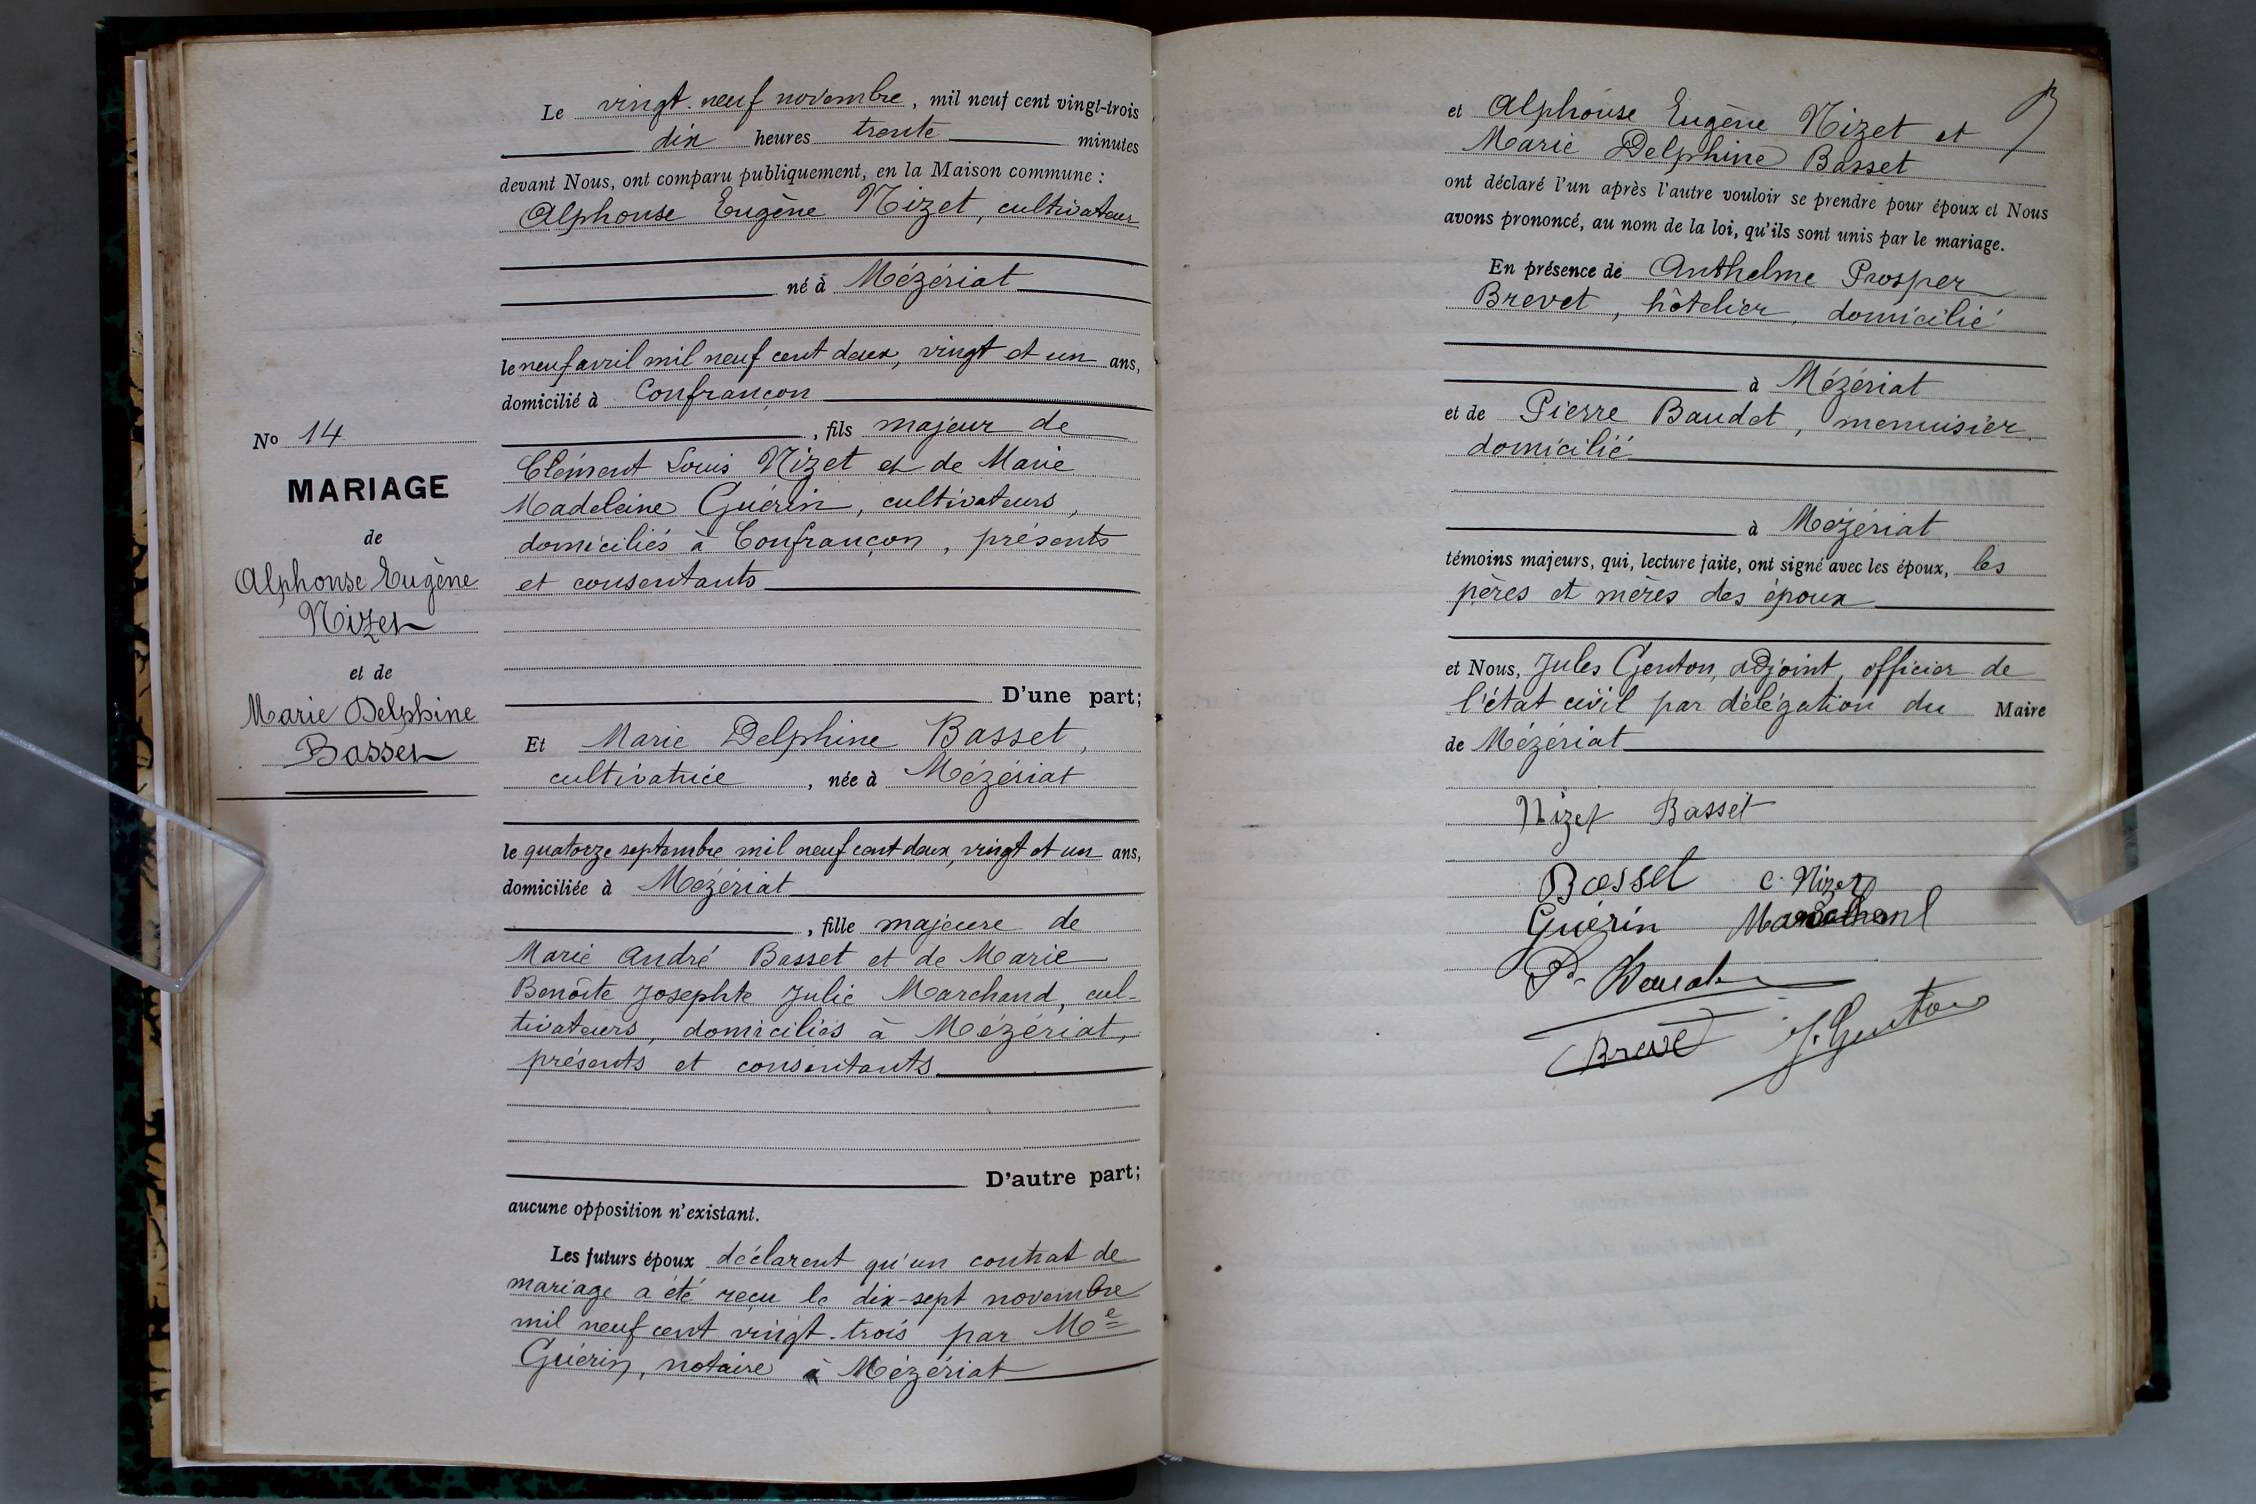 No 14
MARIAGE
de
Alphonse Eugène
Nizet
et de
Marie Delphine
Basset
Le vingt-neuf novembre, mil neuf cent vingt-trois
dix heures trente minutes
devant Nous, ont comparu publiquement, en la Maison commune :
Alphonse Eugène Nizet, cultivateur
né à Mézériat
le neuf avril mil neuf cent deux, vingt et un ans,
domicilié à Confrançon
, fils majeur de
Clément Louis Nizet et de Marie
Madeleine Guérin, cultivateurs,
domiciliés à Confrançon, présents
et consentants
D'une part;
Et Marie Delphine Basset,
cultivatrice, née à Mézériat
le quatorze septembre mil neuf cent deux, vingt et un ans,
domiciliée à Mézériat
, fille majeure de
Marie André Basset et de Marie
Benoîte Josephte Julie Marchand, cul-
tivateurs, domiciliés à Mézériat,
présents et consentants.
D'autre part;
aucune opposition n'existant.
Les futurs époux déclarent qu'un contrat de
mariage a été reçu le dix-sept novembre
mil neuf cent vingt-trois par Me
Guérin, notaire à Mézériat
et Alphonse Eugène Nizet et
Marie Delphine Basset
ont déclaré l'un après l'autre vouloir se prendre pour époux et Nous
avons prononcé, au nom de la loi, qu'ils sont unis par le mariage.
En présence de Anthelme Prosper
Brevet, hôtelier, domicilié
à Mézériat
et de Pierre Baudet, menuisier,
domicilié
à Mézériat
témoins majeurs, qui, lecture faite, ont signé avec les époux, les
pères et mères des époux
et Nous, Jules Genton, adjoint, officier de
l'état civil par délégation du Maire
de Mézériat
Nizet Basset
Basset C. Nizet
Guérin
Brevet J. Genton